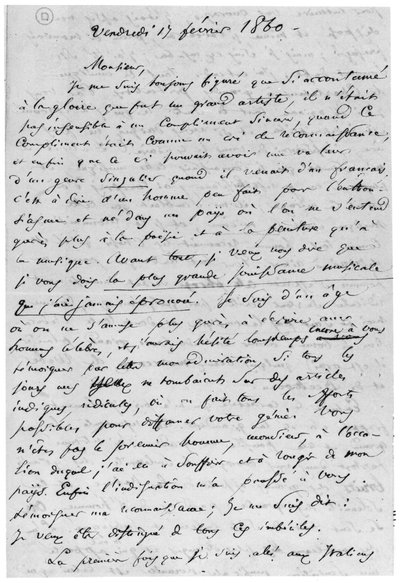 Vendredi 17 février 1860.
Monsieur,
Je me suis toujours figuré que si accoutumé
à la gloire que fut un grand artiste, il n'était
pas insensible à un compliment sincère, quand ce
compliment était comme un cri de reconnaissance,
et enfin que ce cri pouvait avoir une valeur
d'un genre singulier quand il venait d'un français,
c'est-à-dire d'un homme peu fait pour l'enthou-
siasme et né dans un pays où l'on ne s'entend
guères plus à la poésie et à la peinture qu'à
la musique. Avant tout, je veux vous dire que
je vous dois la plus grande jouissance musicale
que j'aie jamais éprouvée. Je suis d'un âge
où on ne s'amuse plus guères à écrire aux
hommes célèbres, et j'aurais hésité longtemps encore à vous
témoigner par lettre mon admiration, si tous les
jours mes yeux ne tombaient sur des articles
indignes, ridicules, où on fait tous les efforts
possibles pour diffamer votre génie. Vous
n'êtes pas le premier homme, monsieur, à l'occa-
sion duquel j'ai eu à souffrir et à rougir de mon
pays. Enfin l'indignation m'a poussé à vous
témoigner ma reconnaissance; je me suis dit:
je veux être distingué de tous ces imbéciles.
La première fois que je suis allé aux Italiens